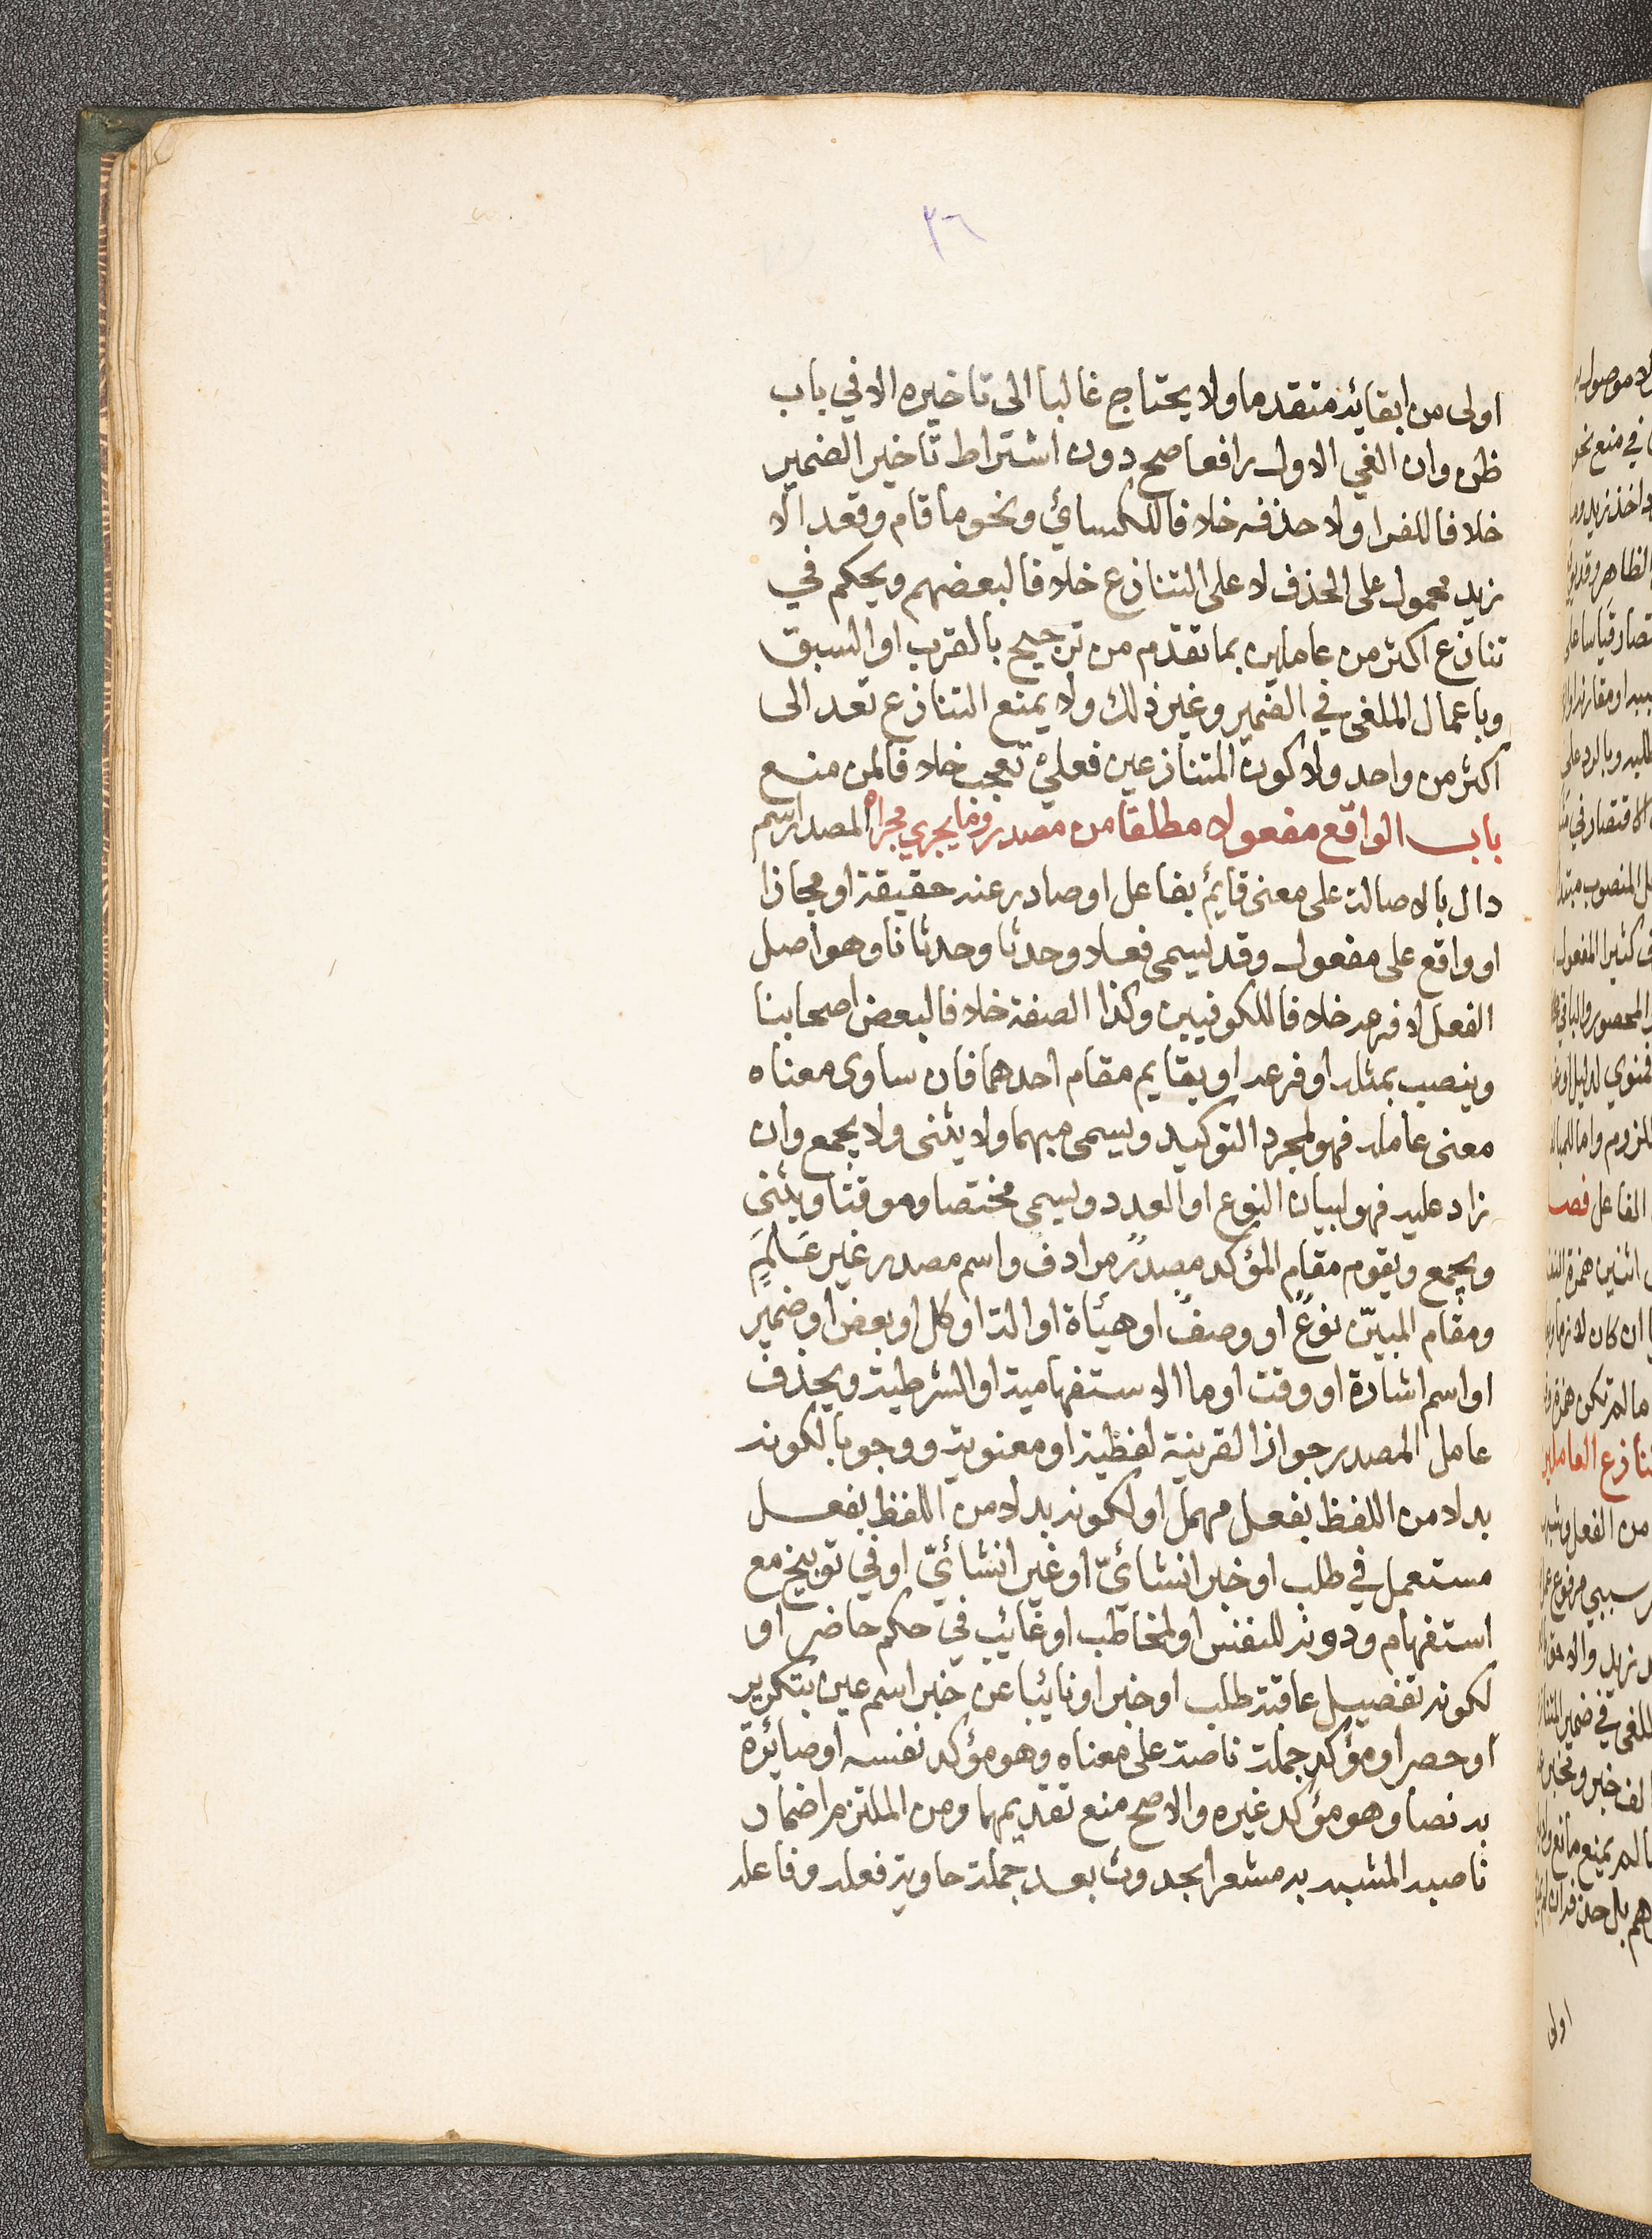 ٣٦
اولى من ابقائه متقدما ولا يحتاج غالبا الى تاخيره الا في باب
ظن وان الغي الاول رافعا صح دون اشتراط تاخير الضمير
خلافا للفرا ولا حذفه خلافا للكسائي ونحو ما قام وقعد الا
زيد محمول على الحذف لا على التنازع خلافا لبعضهم ويحكم في
تنازع اكثر من عاملين بما تقدم من ترجيح بالقرب او السبق
وباعمال الملغى في الضمير وغير ذلك ولا يمنع التنازع تعد الى
اكثر من واحد ولا كون المتنازعين فعلي تعجب خلافا لمن منع
باب الواقع مفعولا مطلقا من مصدر وما يجري مجراه المصدر اسم
دال بالاصالة على معنى قايم بفاعل او صادر عنه حقيقة او مجازا
او واقع على مفعول وقد يسمى فعلا وحدثا وحدثانا وهو اصل
الفعل لا فرعه خلافا للكوفيين وكذا الصفة خلافا لبعض اصحابنا
وينصب بمثله او فرعه او بقايم مقام احدهما فان ساوى معناه
معنى عامله فهو لمجرد التوكيد ويسمى مبهما ولا يثنى ولا يجمع وان
زاد عليه فهو لبيان النوع او العدد ويسمى مختصا وموقتا ويثنى
ويجمع ويقوم مقام المؤكد مصدرٌ مرادفٌ واسم مصدر غير عَلَمٍ
ومقام المبيّن نوعٌ او وصفٌ او هيئاة او الة او كل او بعض او ضمير
او اسم اشارة او وقت او ما الاستفهامية او الشرطية ويحذف
عامل المصدر جوازا لقرينة لفظية او معنوية ووجوبا لكونه
بدلا من اللفظ بفعل مهمل او لكونه بدلا من اللفظ بفعل
مستعمل في طلب او خبر انشائيّ او غير انشائيّ او في توبيخ مع
استفهام ودونه للنفس او لمخاطب او غائب في حكم حاضر او
لكونه تفصيل عاقبة طلب او خبر او نائبا عن خبر اسم عين بتكرير
او حصر او مؤكد جملة ناصة على معناه وهو مؤكد نفسه او صائرة
به نصا وهو مؤكد غيره والاصح منع تقديمهما ومن الملتزم اضمار
ناصبه المشبه به مشعرا بحدوث بعد جملة حاوية فعله وفاعله
اولى